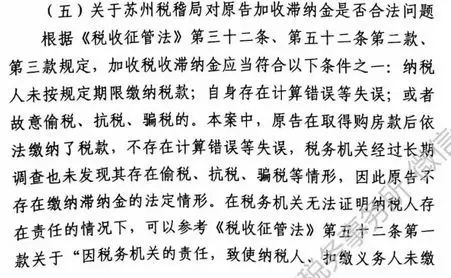 （五）关于苏州税稽局对原告加收滞纳金是否合法问题
根据《税收征管法》第三十二条、第五十二条第二款、
第三款规定，加收税收滞纳金应当符合以下条件之一：纳税
人未按规定期限缴纳税款；自身存在计算错误等失误；或者
故意偷税、抗税、骗税的。本案中，原告在取得购房款后依
法缴纳了税款，不存在计算错误等失误，税务机关经过长期
调查也未发现其存在偷税、抗税、骗税等情形，因此原告不
存在缴纳滞纳金的法定情形。在税务机关无法证明纳税人存
在责任的情况下，可以参考《税收征管法》第五十二条第一
款关于“因税务机关的责任，致使纳税人、扣缴义务人未缴